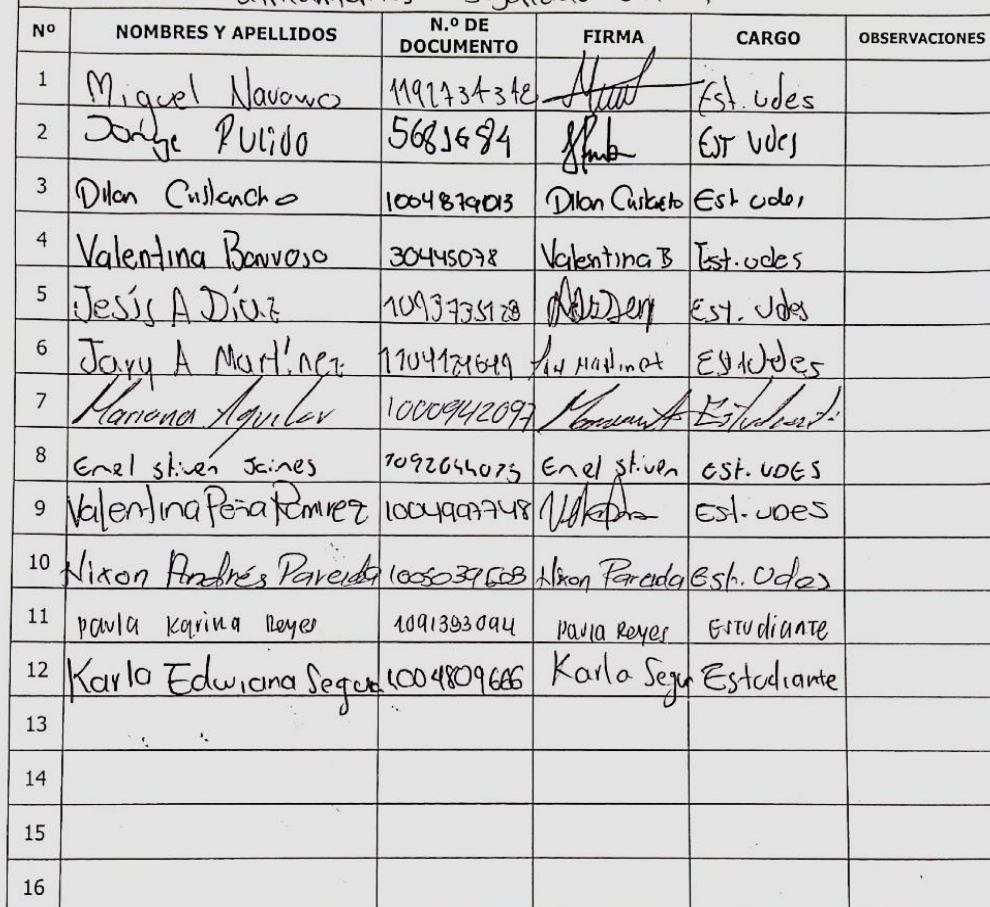 Nº NOMBRES Y APELLIDOS N.º DE DOCUMENTO FIRMA CARGO OBSERVACIONES
1 Miguel Navarro 1192734348 Est. udes
2 Jorge Pulido 5681684 Est Udes
3 Dilan Cristancho 1004879013 Dilan Est udes
4 Valentina Barroso 30445078 Valentina B Est. udes
5 Jesús A Díaz 1093735128 Est. Udes
6 A Martínez 1104121649 Martinez Est Udes
7 Mariana Aguilar 1000942097 Estudiante
8 Enel stiven Jaines Enel stiven EST. UDES
9 Valentina Peña Ramirez 1004907748 Est. UDES
10 Nixon Andrés Pareida Nixon Pareida Est. Udes
11 paula karina Reyes 1091353094 paula Reyes Estudiante
12 Karla Edwiana Segur 1004809666 Karla Segur Estudiante
13
14
15
16